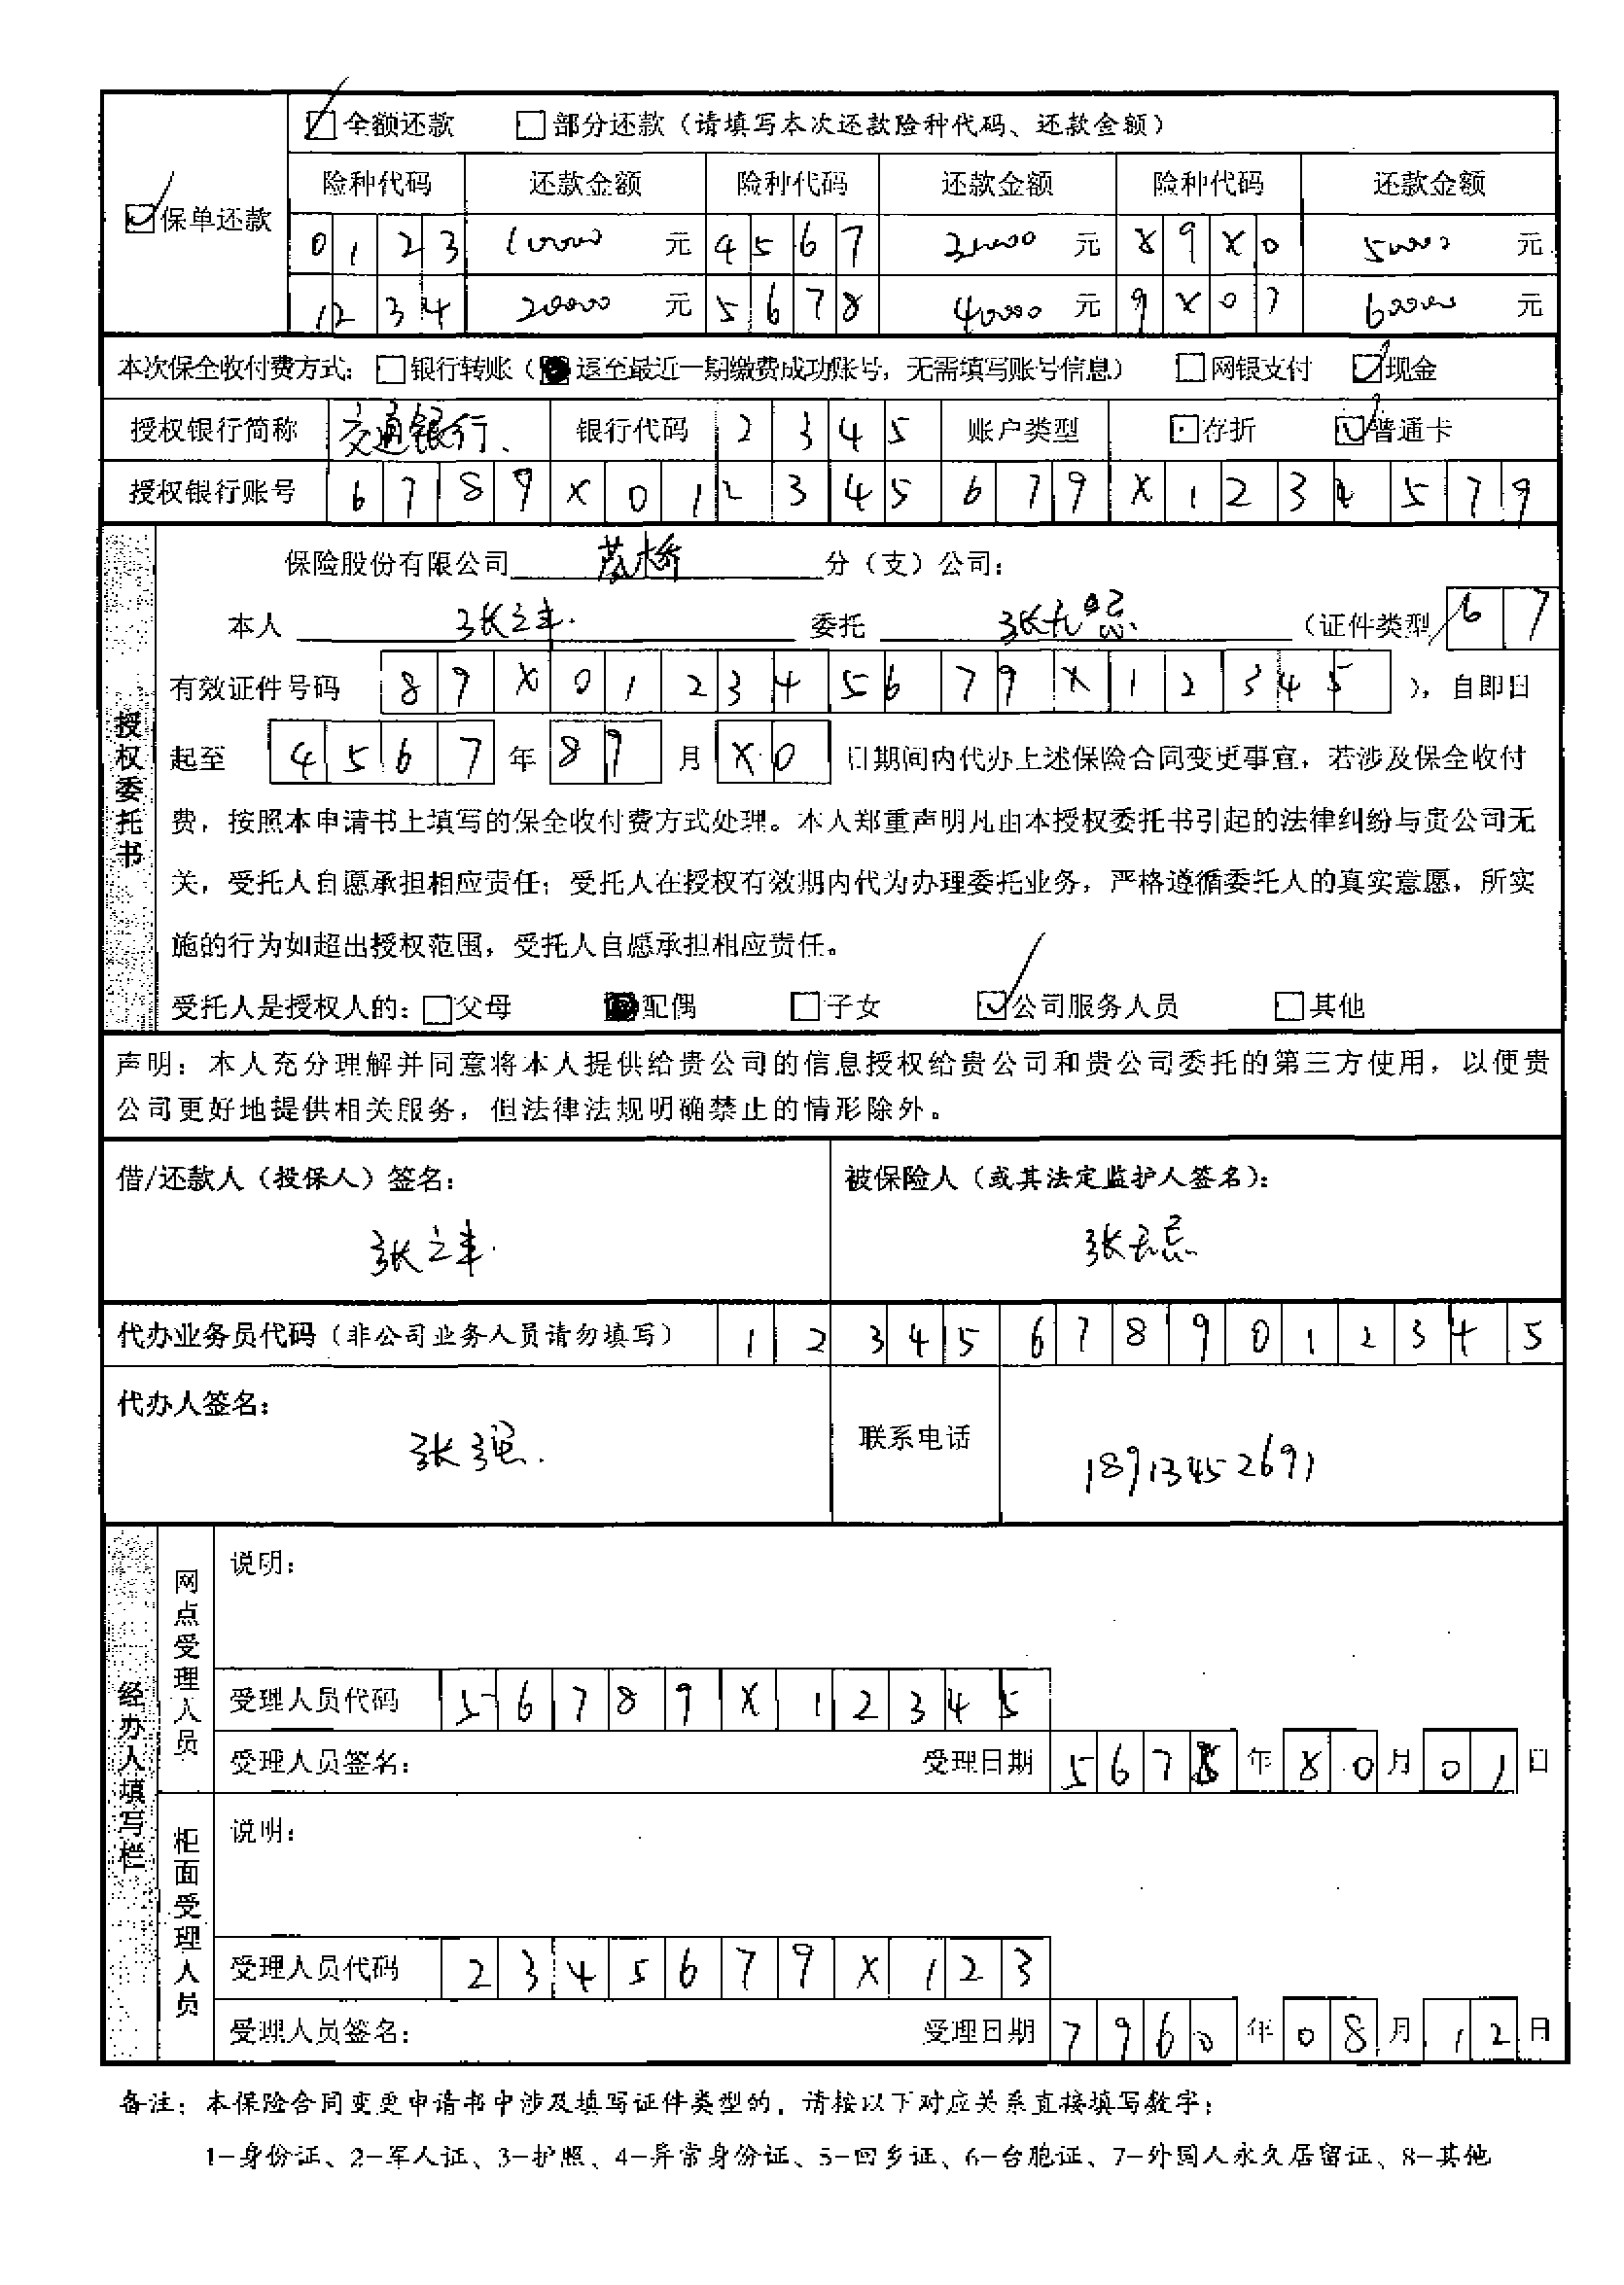 全额还款 部分还款（请填写本次还款险种代码、还款金额）
保单还款
险种代码 还款金额 险种代码 还款金额 险种代码 还款金额
0123 元 4567 元 89X0 元
1234 20000 元 5678 40000 元 9X07 元
本次保全收付费方式：银行转账（退至最近一期缴费成功账号，无需填写账号信息） 网银支付 现金
授权银行简称 交通银行 银行代码 2345 账户类型 存折 普通卡
授权银行账号 6789X012345679X1234579
授权委托书
保险股份有限公司 分（支）公司：
本人 张三丰 委托 张无忌 （证件类型 67
有效证件号码 89X012345679X12345 ），自即日
起至 4567 年 89 月 X0 日期间内代办上述保险合同变更事宜，若涉及保全收付
费，按照本申请书上填写的保全收付费方式处理。本人郑重声明凡由本授权委托书引起的法律纠纷与贵公司无
关，受托人自愿承担相应责任；受托人在授权有效期内代为办理委托业务，严格遵循委托人的真实意愿，所实
施的行为如超出授权范围，受托人自愿承担相应责任。
受托人是授权人的：父母 配偶 子女 公司服务人员 其他
声明：本人充分理解并同意将本人提供给贵公司的信息授权给贵公司和贵公司委托的第三方使用，以便贵
公司更好地提供相关服务，但法律法规明确禁止的情形除外。
借/还款人（投保人）签名： 被保险人（或其法定监护人签名）：
张三丰 张无忌
代办业务员代码（非公司业务人员请勿填写） 123456789012345
代办人签名：
张强 联系电话 18913452691
经办人填写栏
网点受理人员
说明：
受理人员代码 56789X12345
受理人员签名： 受理日期 5678 年 80 月 01 日
柜面受理人员
说明：
受理人员代码 2345679X123
受理人员签名： 受理日期 7960 年 08 月 12 日
备注：本保险合同变更申请书中涉及填写证件类型的，请按以下对应关系直接填写数字：
1-身份证、2-军人证、3-护照、4-异常身份证、5-回乡证、6-台胞证、7-外国人永久居留证、8-其他